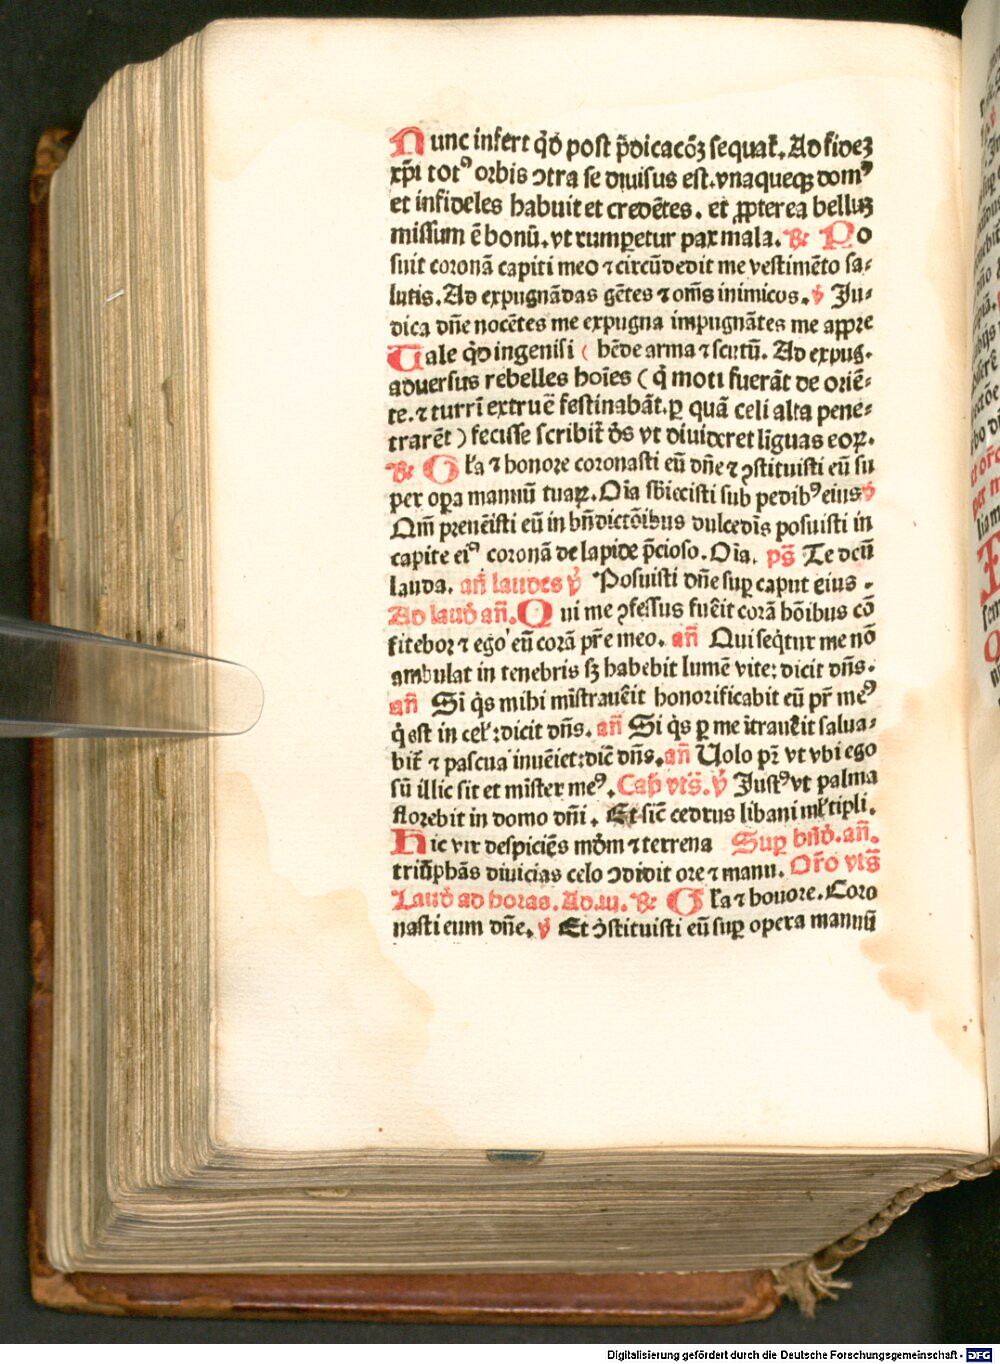 Nunc infert qd̄ post p̄dicacōꝫ sequat᷑. Ad fideꝫ
xp̄i totꝰ orbis ↄtra se diuisus est. vnaqueqꝫ domꝰ
et infideles habuit et credētes. et ꝓpterea belluꝫ
missum ē bonū. vt rumperetur pax mala. ℞ Po
suit coronā capiti meo ⁊ circūdedit me vestimēto sa⸗
lutis. Ad expugnādas gētes ⁊ om̄s inimicos. ℣ Ju⸗
dica dn̄e nocētes me expugna impugnātes me appre
Tale qd̄ ingenisi ( hēde arma ⁊ scutū. Ad expug.
aduersus rebelles hoīes ( q̄ moti fuerāt de oriē⸗
te. ⁊ turrī extruē festinabāt. ꝑ quā celi alta pene⸗
trarēt ) fecisse scribit᷑ ds̄ vt diuideret līguas eoꝝ.
℞ Gl̄a ⁊ honore coronasti eū dn̄e ⁊ ↄstituisti eū su
per oꝑa manuū tuaꝝ. Oīa sb̄iecisti sub pedibꝰ eius ℣
Qm̄ preuēisti eū in bn̄dictōibus dulcedīs posuisti in
capite eiꝰ coronā de lapide p̄cioso. Oīa. ps̄ Te deū
lauda. an̄ laudes ℣ Posuisti dn̄e suꝑ caput eius .
Ad laud̄ an̄. Qui me ↄfessus fuēit corā hōibus cō
fitebor ⁊ ego eū corā pr̄e meo. an̄ Qui seq̄tur me nō
ambulat in tenebris sꝫ habebit lumē vite: dicit dn̄s.
an̄ Si q̄s mihi mīstrauēit honorificabit eū pr̄ meꝰ
q̄ est in cel̄: dicit dn̄s. an̄ Si q̄s ꝑ me ītrauēit salua⸗
bit᷑ ⁊ pascua inuēiet: dic̄ dn̄s. an̄ Uolo pr̄ vt vbi ego
sū illic sit et mīster meꝰ. Cap̄ vts̄. ℣ Justꝰ vt palma
florebit in domo dn̄i . Et sic̄ cedrus libani ml̄tipli.
Hic vir despiciēs mūdm ⁊ terrena Suꝑ bn̄d̄. an̄.
triūphās diuicias celo ↄdidit ore ⁊ manu. Or̄o vts̄
Laud̄ ad horas. Ad. iij. ℞ Gl̄a ⁊ honore. Coro
nasti eum dn̄e. ℣ Et ↄ̄stituisti eū suꝑ opera manuū
Digitalisierung gefördert durch die Deutsche Forschungsgemeinschaft - DFG